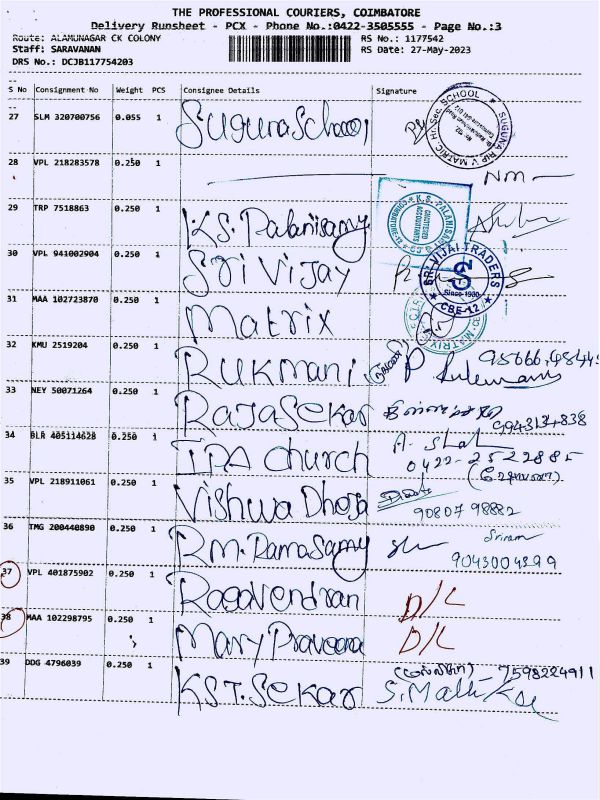 THE PROFESSIONAL COURIERS, COIMBATORE
Delivery Runsheet - PCX - Phone No.:0422-3505555 - Page No.:3
Route: ALAMUNAGAR CK COLONY RS No.: 1177542
Staff: SARAVANAN RS Date: 27-May-2023
DRS No.: DCJB117754203
S No Consignment No Weight PCS Consignee Details Signature
27 SLM 320700756 0.055 1 Suguna School
28 VPL 218283578 0.250 1
29 TRP 7518863 0.250 1 K.S. Palanisamy
K.S. PALANISAMY
CHARTERED ACCOUNTANTS
30 VPL 941002904 0.250 1 Sri Vijay
SRI VIJAI TRADERS
S
Since 1980
CBE-12
31 MAA 102723870 0.250 1 Matrix
MATRIX
32 KMU 2519204 0.250 1 Rukmani
33 NEY 50071264 0.250 1 Rajasekar
34 BLR 405114628 0.250 1 IPA Church
0422-2522885
35 VPL 218911061 0.250 1 Vishwa Dhoja
90807 98882
36 TMG 200440890 0.250 1 RM. Ramasamy Sriram
9043004399
37 VPL 401875902 0.250 1 Ragavendran D/L
38 MAA 102298795 0.250 1 Mary Praveena D/L
39 DDG 4796039 0.250 1 KST. Sekar 7598224911